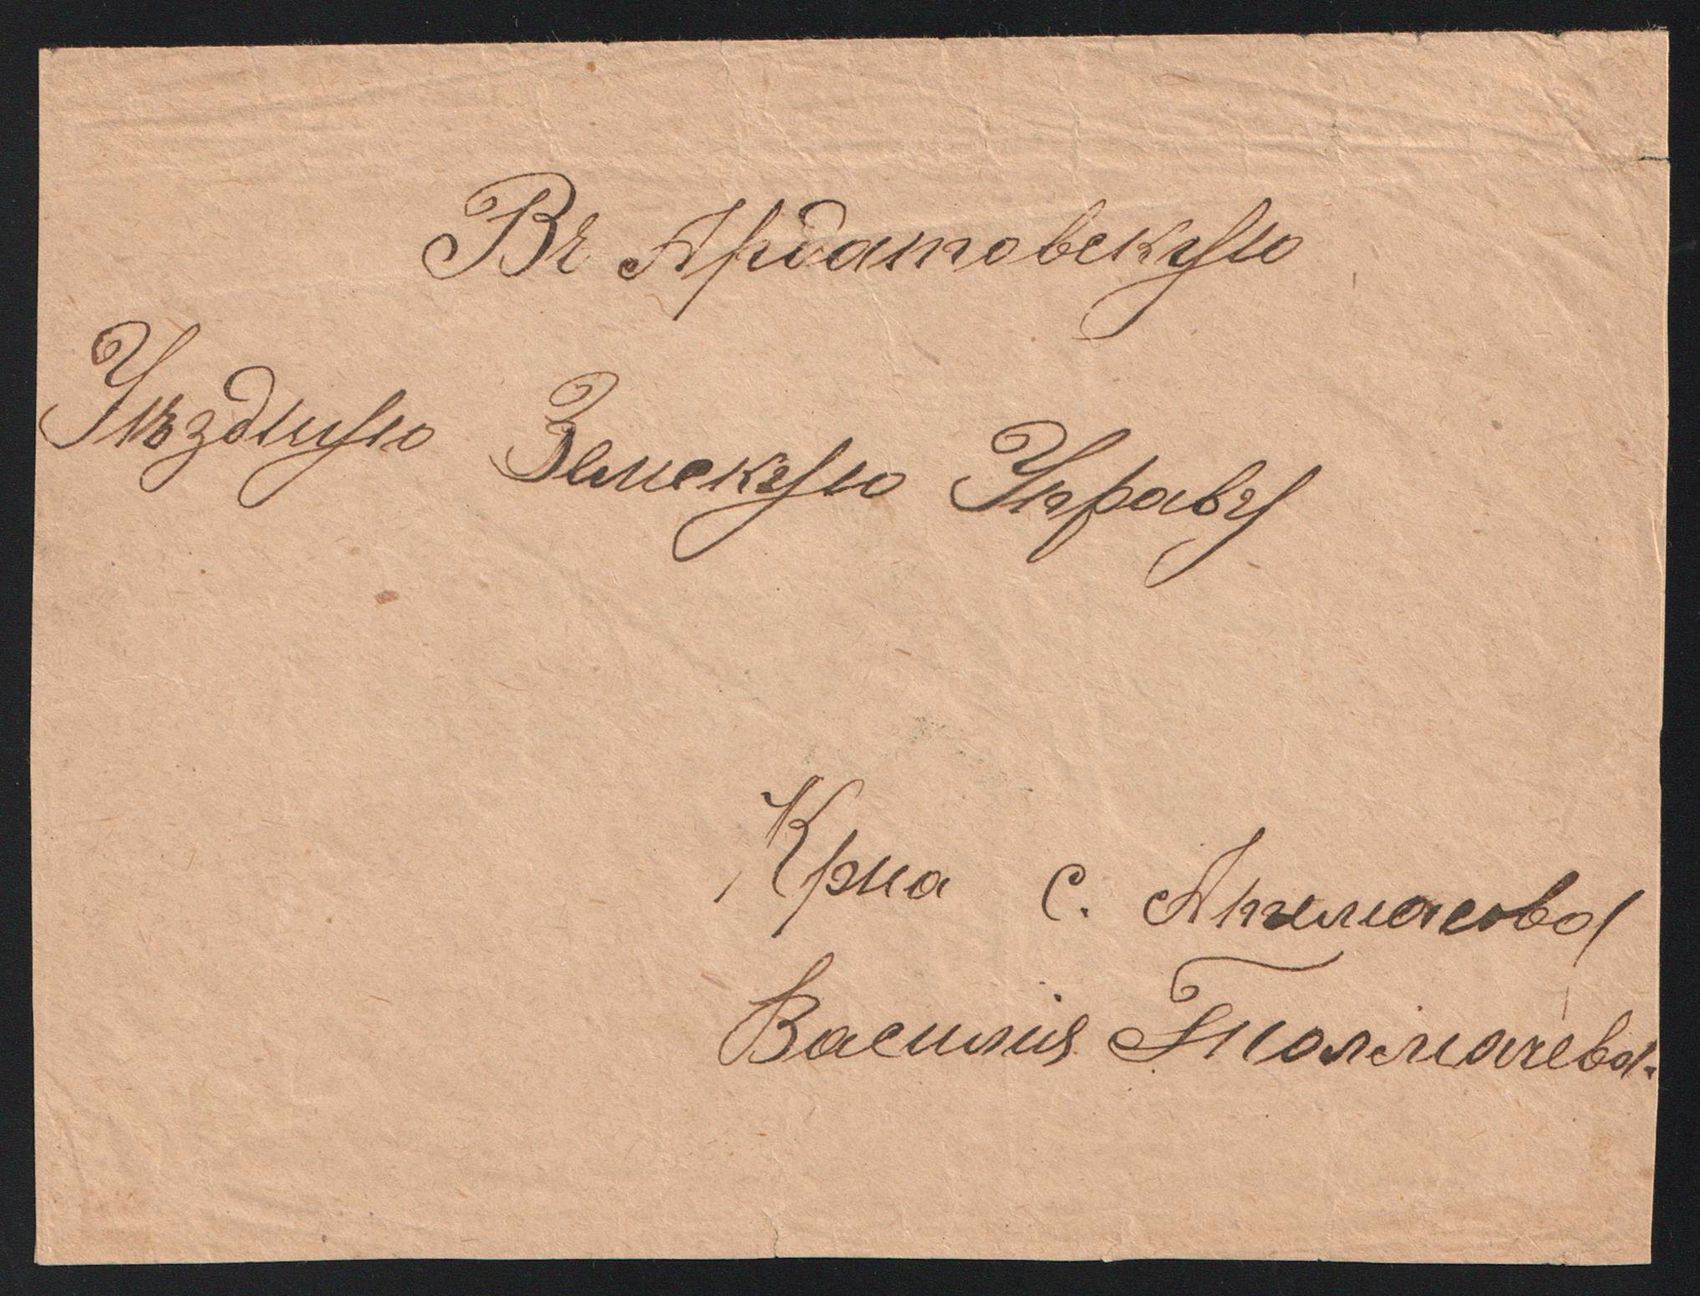 Въ Ардатовскую
Уѣздную Земскую Управу
Крна с. Ахмасова
Василія Толмачева.